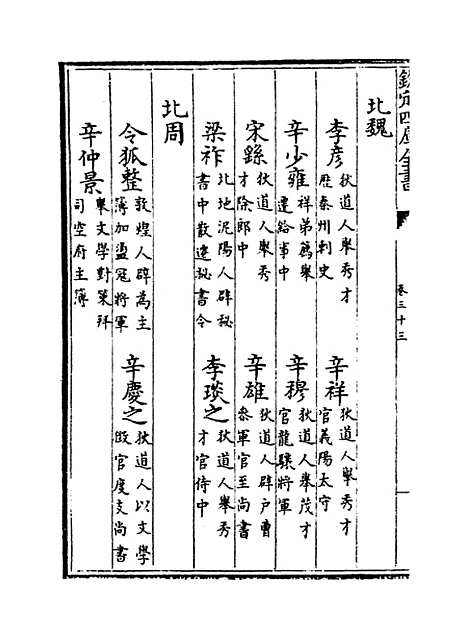 欽定四庫全書
卷三十三
北魏
李彦 狄道人舉秀才歴秦州刺史
辛祥 狄道人舉秀才官義陽太守
辛少雍 祥弟薦舉遷給事中
辛穆 狄道人舉茂才官龍驤將軍
宋繇 狄道人舉秀才除郎中
辛雄 狄道人辟户曹參軍官至尚書
梁祚 北地泥陽人辟秘書中散遷秘書令
李琰之 狄道人舉秀才官侍中
北周
令狐整 敦煌人辟為主簿加盪冦將軍
辛慶之 狄道人以文學徴官度支尚書
辛仲景 舉文學對策拜司空府主簿